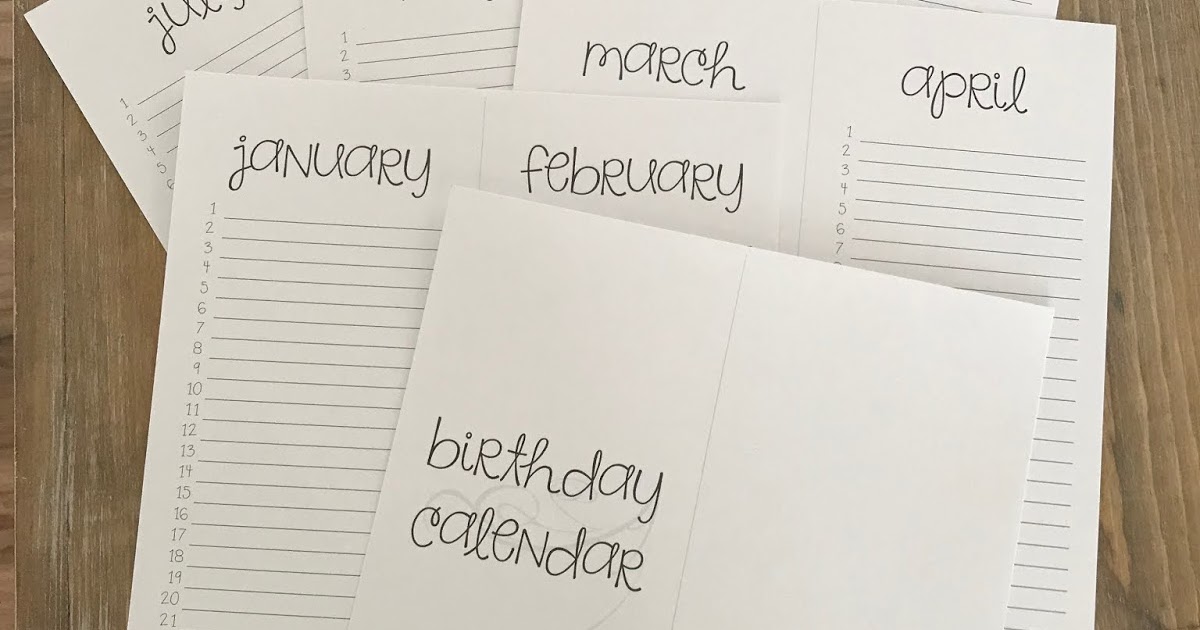 july
1
2
3
4
5
6
1
2
3
march
april
1
2
3
4
5
6
7
january
1
2
3
4
5
6
7
8
9
10
11
12
13
14
15
16
17
18
19
20
21
february
birthday
calendar